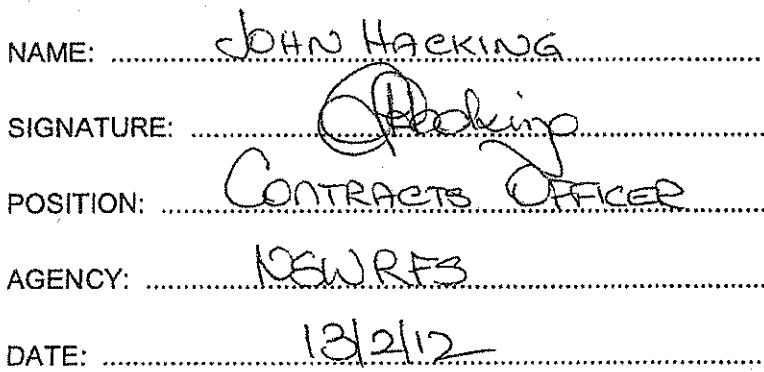 NAME: JOHN HACKING
SIGNATURE: JHacking
POSITION: CONTRACTS OFFICER
AGENCY: NSWRFS
DATE: 13/2/12